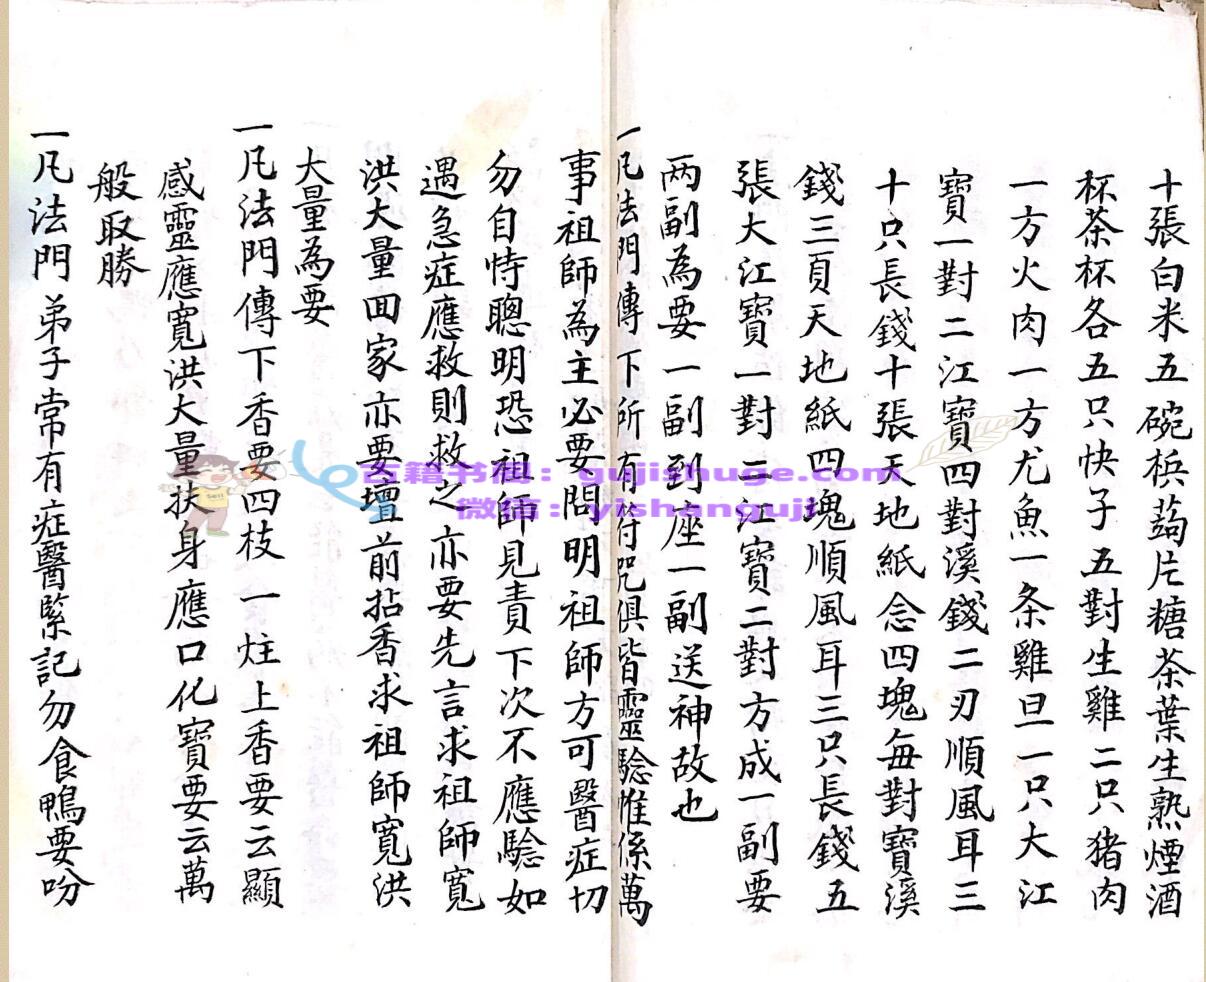 十張白米五碗梹蒟片糖茶葉生熟煙酒
杯茶杯各五只快子五對生雞二只猪肉
一方火肉一方尤魚一条雞旦一只大江
寶一對二江寶四對溪錢二刃順風耳三
十只長錢十張天地紙念四塊每對寶溪
錢三頁天地紙四塊順風耳三只長錢五
張大江寶一對二江寶二對方成一副要
两副為要一副到座一副送神故也
一凡法門傳下所有符咒俱皆靈驗惟係萬
事祖師為主必要問明祖師方可醫症切
勿自恃聰明恐祖師見責下次不應驗如
遇急症應救則救之亦要先言求祖師寬
洪大量囬家亦要壇前拈香求祖師寬洪
大量為要
一凡法門傳下香要四枝一炷上香要云顯
感靈應寬洪大量扶身應口化寶要云萬
般取勝
一凡法門弟子常有症醫緊記勿食鴨要吩
古籍书组：gujishuge.com
微信：yishanguji